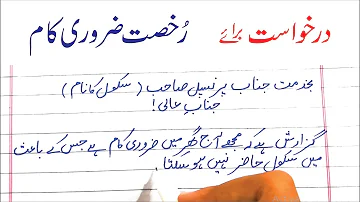 درخواست برائے رُخصت ضروری کام
بخدمت جناب پرنسپل صاحب ( سکول کا نام )
جناب عالی !
گزارش ہے کہ مجھے آج گھر میں ضروری کام ہے جس کے باعث
میں سکول حاضر نہیں ہو سکتا .